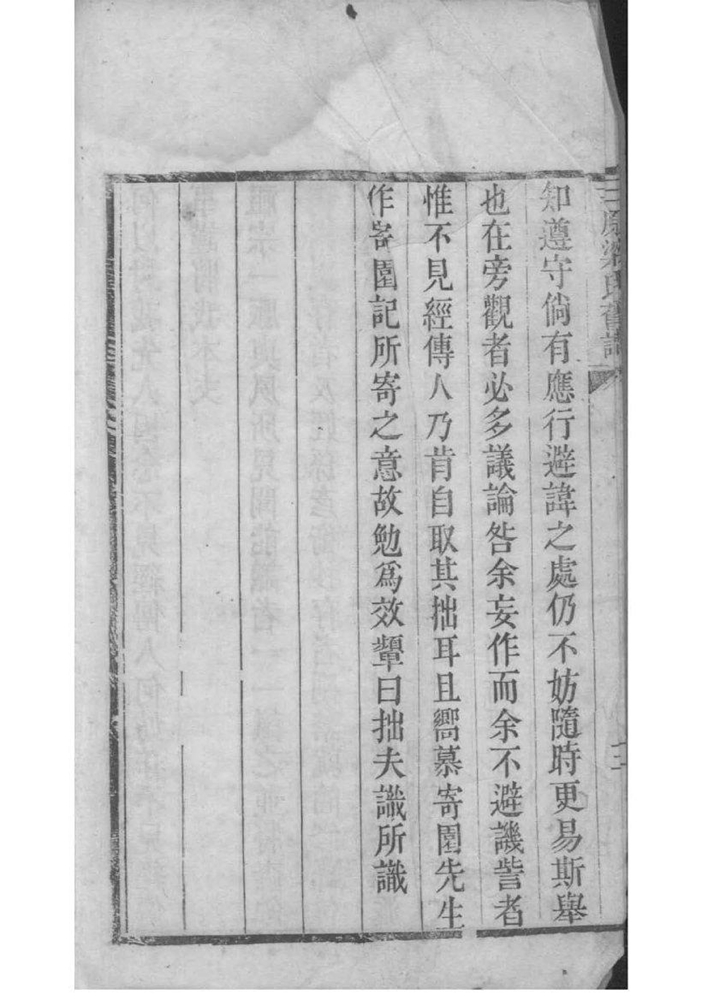 知遵守倘有應行避諱之處仍不妨隨時更易斯舉
也在旁觀者必多議論咎余妄作而余不避譏訾者
惟不見經傳人乃肯自取其拙耳且嚮慕寄園先生
作寄園記所寄之意故勉爲效顰曰拙夫識所識